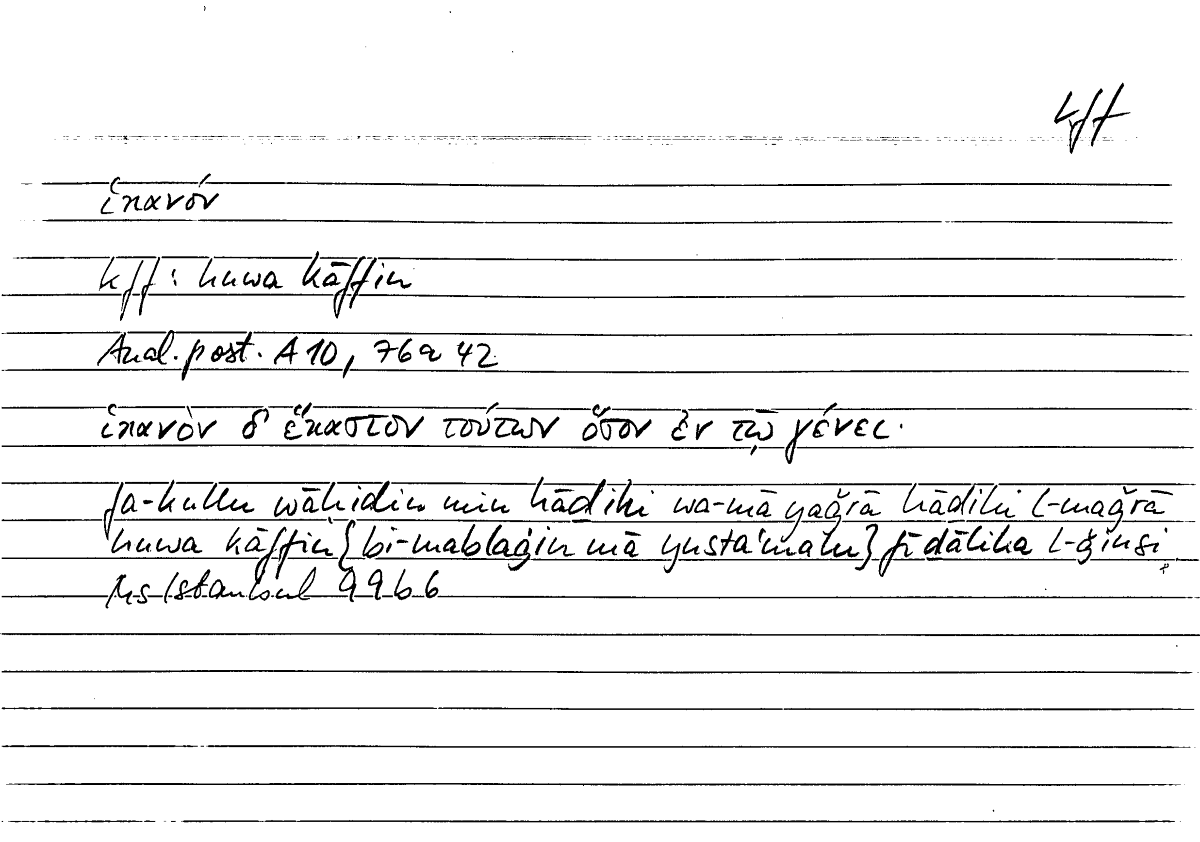 kff
ἱκανόν
kff: huwa kāffin
Anal. post. A 10, 76a 42
ἱκανὸν δ' ἕκαστον τούτων ὅσον ἐν τῷ γένει.
fa-kullu wāhidin min hādihi wa-mā yaǧrā hādihi l-maǧrā
huwa kāffin {bi-mablaġin mā yusta'malu} fī dālika l-ǧinsi
Ms Istanbul 99b6